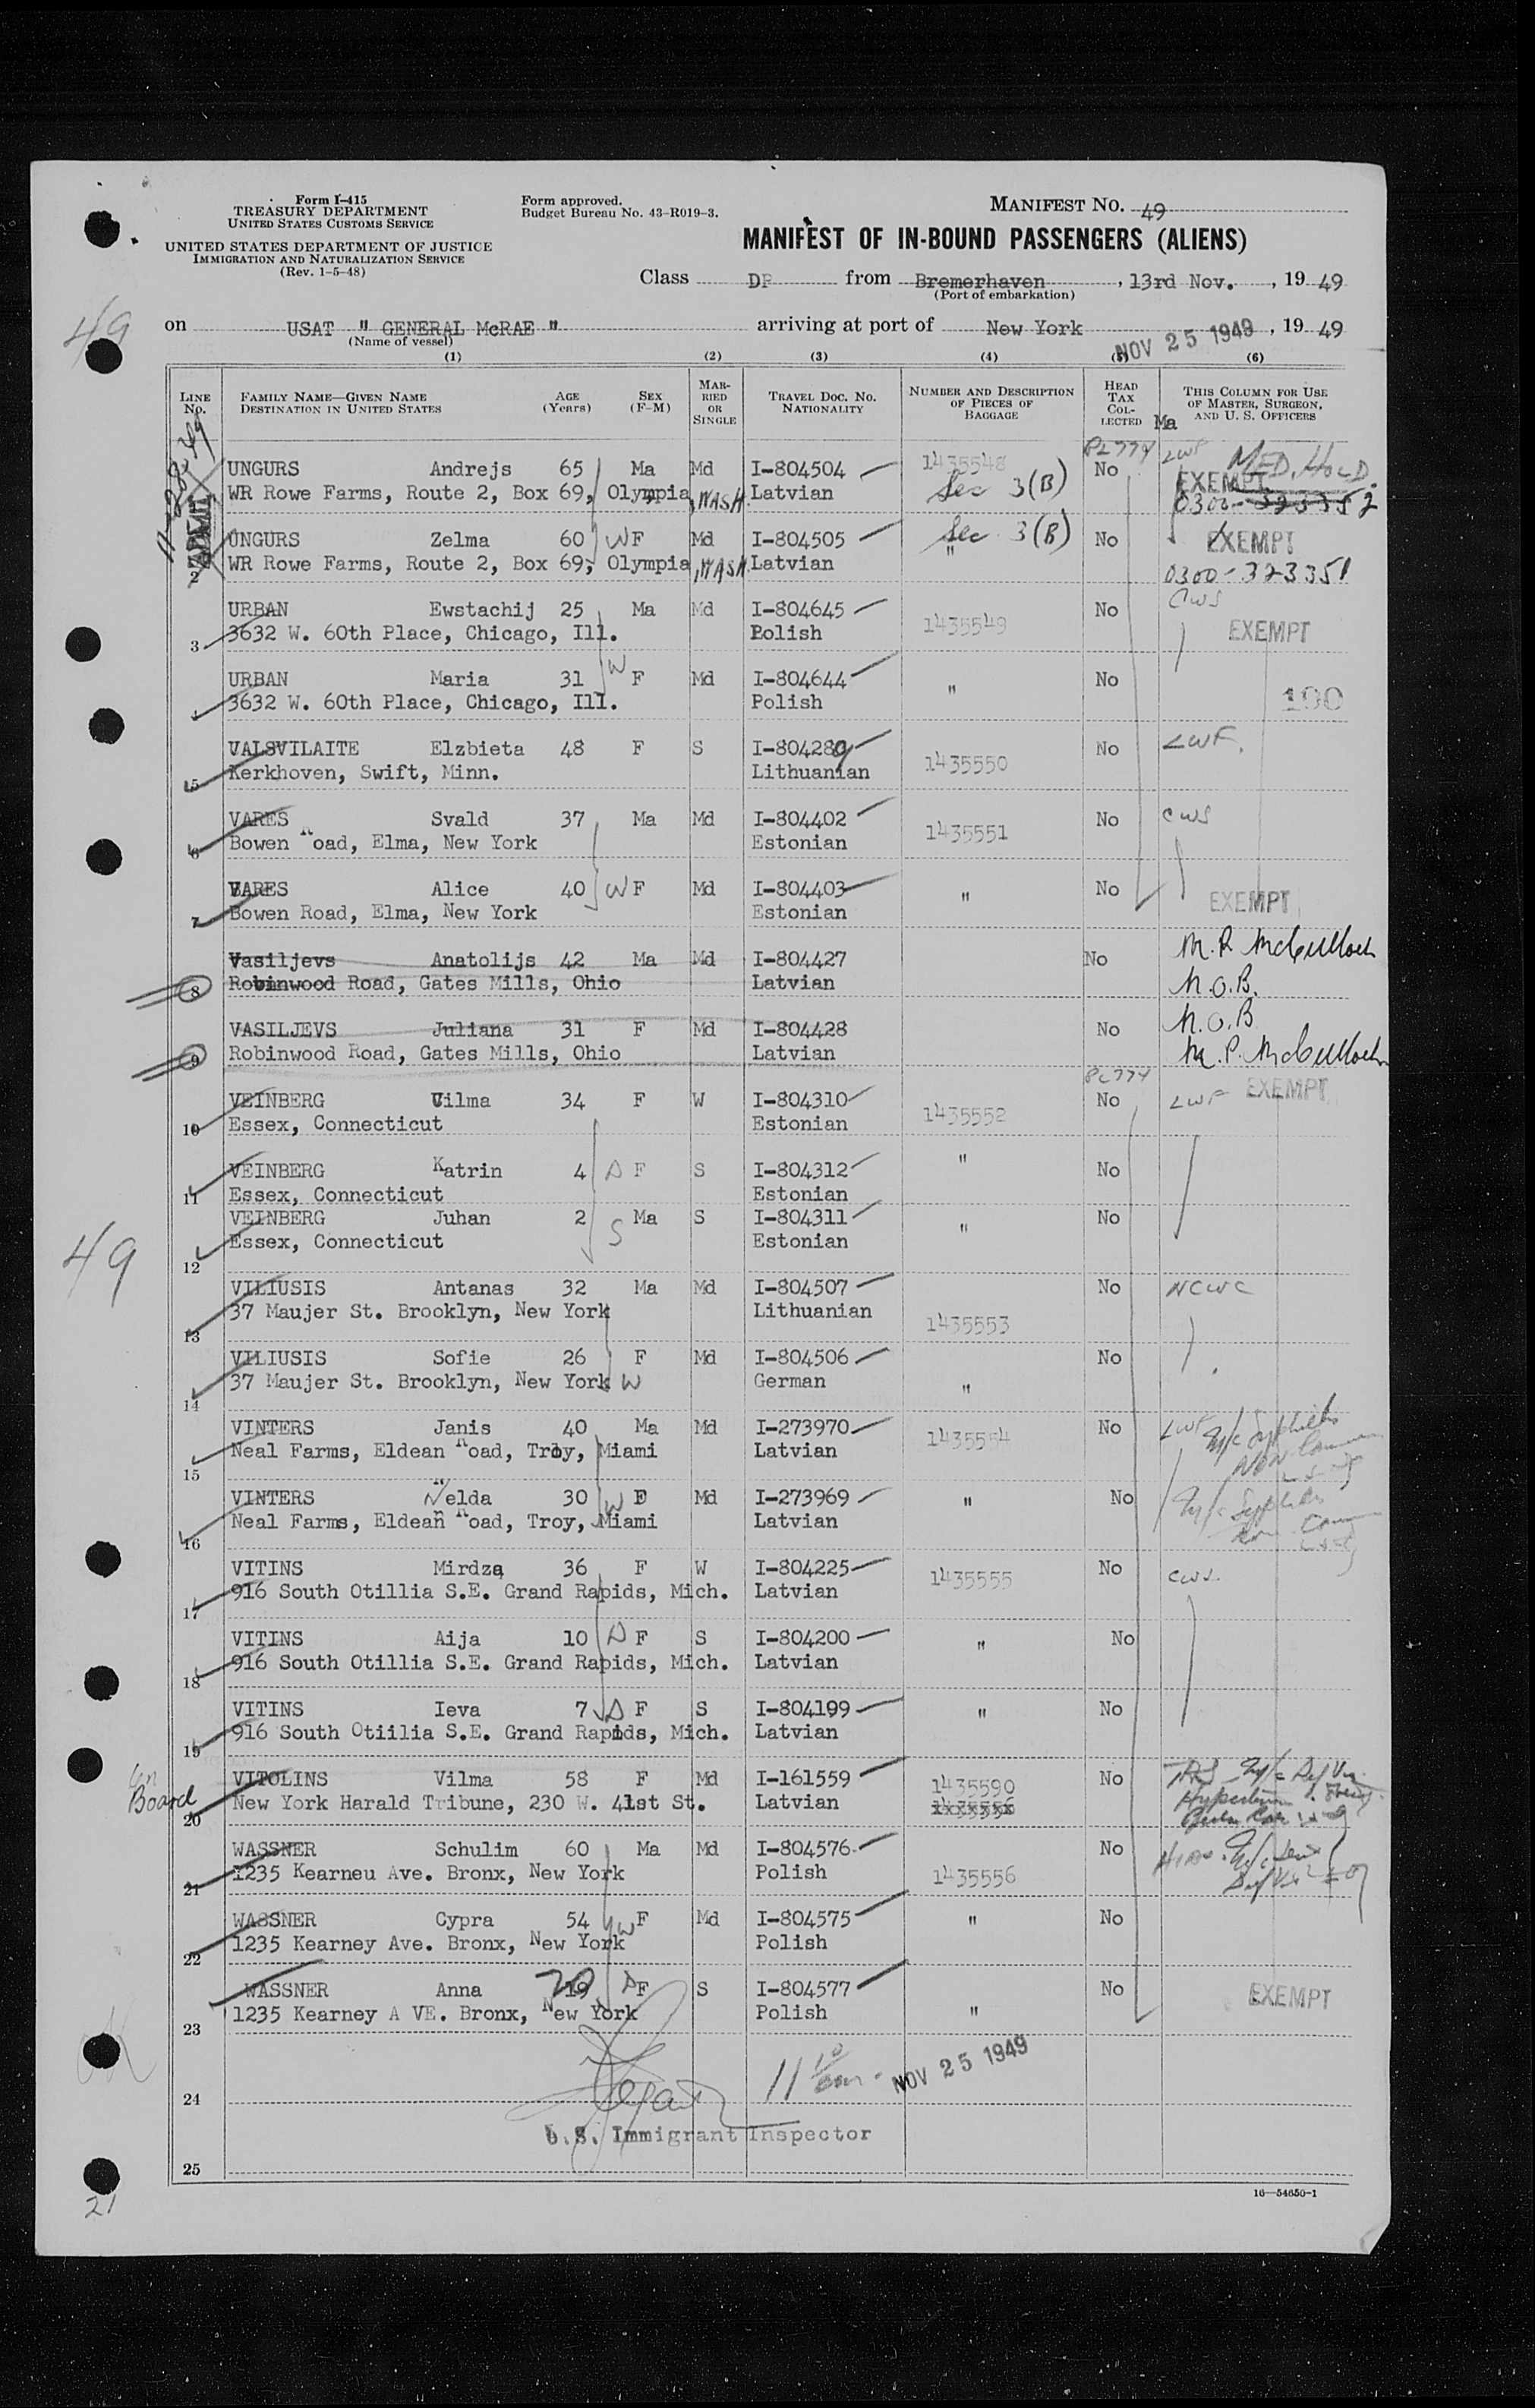 Form I-415
TREASURY DEPARTMENT
UNITED STATES CUSTOMS SERVICE
UNITED STATES DEPARTMENT OF JUSTICE
IMMIGRATION AND NATURALIZATION SERVICE
(Rev. 1-5-48)
Form approved.
Budget Bureau No. 43-R019-3.
MANIFEST NO. 49
MANIFEST OF IN-BOUND PASSENGERS (ALIENS)
Class DP from Bremerhaven, 13rd Nov., 19 49
(Port of embarkation)
49
on USAT " GENERAL McRAE " arriving at port of New York, 19 49
(Name of vessel)
NOV 25 1949
(1) (2) (3) (4) (5) (6)
LINE No. FAMILY NAME—GIVEN NAME DESTINATION IN UNITED STATES AGE (Years) SEX (F-M) MARRIED OR SINGLE TRAVEL DOC. NO. NATIONALITY NUMBER AND DESCRIPTION OF PIECES OF BAGGAGE HEAD TAX COLLECTED THIS COLUMN FOR USE OF MASTER, SURGEON, AND U. S. OFFICERS
Ma
11-28-49
ADMIT
PL774 LWF MED. HOLD
UNGURS Andrejs 65 Ma Md I-804504 1435548 No EXEMPT
WR Rowe Farms, Route 2, Box 69, Olympia, WASH. Latvian Sec 3(B) 0300-323352
UNGURS Zelma 60 W F Md I-804505 Sec. 3(B) No EXEMPT
2 WR Rowe Farms, Route 2, Box 69, Olympia, WASH. Latvian " 0300-323351
URBAN Ewstachij 25 Ma Md I-804645 No CWS
3 3632 W. 60th Place, Chicago, Ill. Polish 1435549 EXEMPT
URBAN Maria 31 W F Md I-804644 " No
3632 W. 60th Place, Chicago, Ill. Polish 100
VALSVILAITE Elzbieta 48 F S I-804289 No LWF.
5 Kerkhoven, Swift, Minn. Lithuanian 1435550
VARES Svald 37 Ma Md I-804402 No CWS
6 Bowen Road, Elma, New York Estonian 1435551
VARES Alice 40 W F Md I-804403 " No
7 Bowen Road, Elma, New York Estonian EXEMPT
Vasiljevs Anatolijs 42 Ma Md I-804427 No M. P. McCulloch
8 Robinwood Road, Gates Mills, Ohio Latvian N.O.B.
VASILJEVS Juliana 31 F Md I-804428 No N.O.B
9 Robinwood Road, Gates Mills, Ohio Latvian M. P. McCulloch
PL774
VEINBERG Vilma 34 F W I-804310 No LWF EXEMPT
10 Essex, Connecticut Estonian 1435552
VEINBERG Katrin 4 D F S I-804312 " No
11 Essex, Connecticut Estonian
VEINBERG Juhan 2 S Ma S I-804311 " No
12 Essex, Connecticut Estonian
49
VILIUSIS Antanas 32 Ma Md I-804507 No NCWC
13 37 Maujer St. Brooklyn, New York Lithuanian 1435553
VILIUSIS Sofie 26 F Md I-804506 No
14 37 Maujer St. Brooklyn, New York W German "
VINTERS Janis 40 Ma Md I-273970 1435554 No LWF M/c Syphilis
15 Neal Farms, Eldean Road, Troy, Miami Latvian NON
VINTERS Nelda 30 W Md I-273969 " No M/c Syphilis
16 Neal Farms, Eldean Road, Troy, Miami Latvian
VITINS Mirdza 36 F W I-804225 1435555 No CWS.
17 916 South Otillia S.E. Grand Rapids, Mich. Latvian
VITINS Aija 10 D F S I-804200 " No
18 916 South Otillia S.E. Grand Rapids, Mich. Latvian
VITINS Ieva 7 D F S I-804199 " No
19 916 South Otiilia S.E. Grand Rapids, Mich. Latvian
on Board
VITOLINS Vilma 58 F Md I-161559 1435590 No
20 New York Harald Tribune, 230 W. 41st St. Latvian
WASSNER Schulim 60 Ma Md I-804576 No HIAS
21 1235 Kearneu Ave. Bronx, New York Polish 1435556
WASSNER Cypra 54 W F Md I-804575 " No
22 1235 Kearney Ave. Bronx, New York Polish
WASSNER Anna 20 D F S I-804577 No EXEMPT
23 1235 Kearney A VE. Bronx, New York Polish "
24 NOV 25 1949
U.S. Immigrant Inspector
25
21
16—54650-1